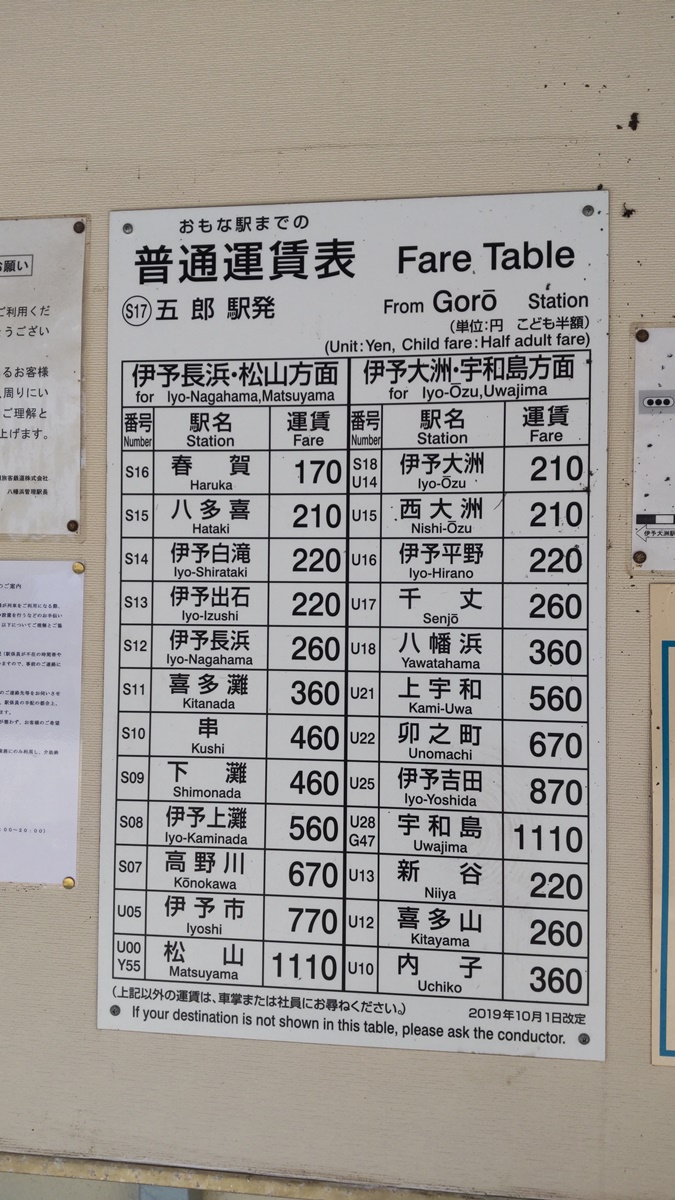 おもな駅までの
普通運賃表 Fare Table
S17 五郎駅発 From Gorō Station
(単位:円 こども半額)
(Unit:Yen, Child fare:Half adult fare)
伊予長浜・松山方面 伊予大洲・宇和島方面
for Iyo-Nagahama,Matsuyama for Iyo-Ōzu,Uwajima
番号 駅名 運賃 番号 駅名 運賃
Number Station Fare Number Station Fare
S16 春賀 Haruka 170 S18 U14 伊予大洲 Iyo-Ōzu 210
S15 八多喜 Hataki 210 U15 西大洲 Nishi-Ōzu 210
S14 伊予白滝 Iyo-Shirataki 220 U16 伊予平野 Iyo-Hirano 220
S13 伊予出石 Iyo-Izushi 220 U17 千丈 Senjō 260
S12 伊予長浜 Iyo-Nagahama 260 U18 八幡浜 Yawatahama 360
S11 喜多灘 Kitanada 360 U21 上宇和 Kami-Uwa 560
S10 串 Kushi 460 U22 卯之町 Unomachi 670
S09 下灘 Shimonada 460 U25 伊予吉田 Iyo-Yoshida 870
S08 伊予上灘 Iyo-Kaminada 560 U28 G47 宇和島 Uwajima 1110
S07 高野川 Kōnokawa 670 U13 新谷 Niiya 220
U05 伊予市 Iyoshi 770 U12 喜多山 Kitayama 260
U00 Y55 松山 Matsuyama 1110 U10 内子 Uchiko 360
(上記以外の運賃は、車掌または社員にお尋ねください。) 2019年10月1日改定
If your destination is not shown in this table, please ask the conductor.
お願い
ご利用くだ
うござい
るお客様
周りにい
ご理解と
上げます。
旅客鉄道株式会社
八幡浜管理駅長
のご案内